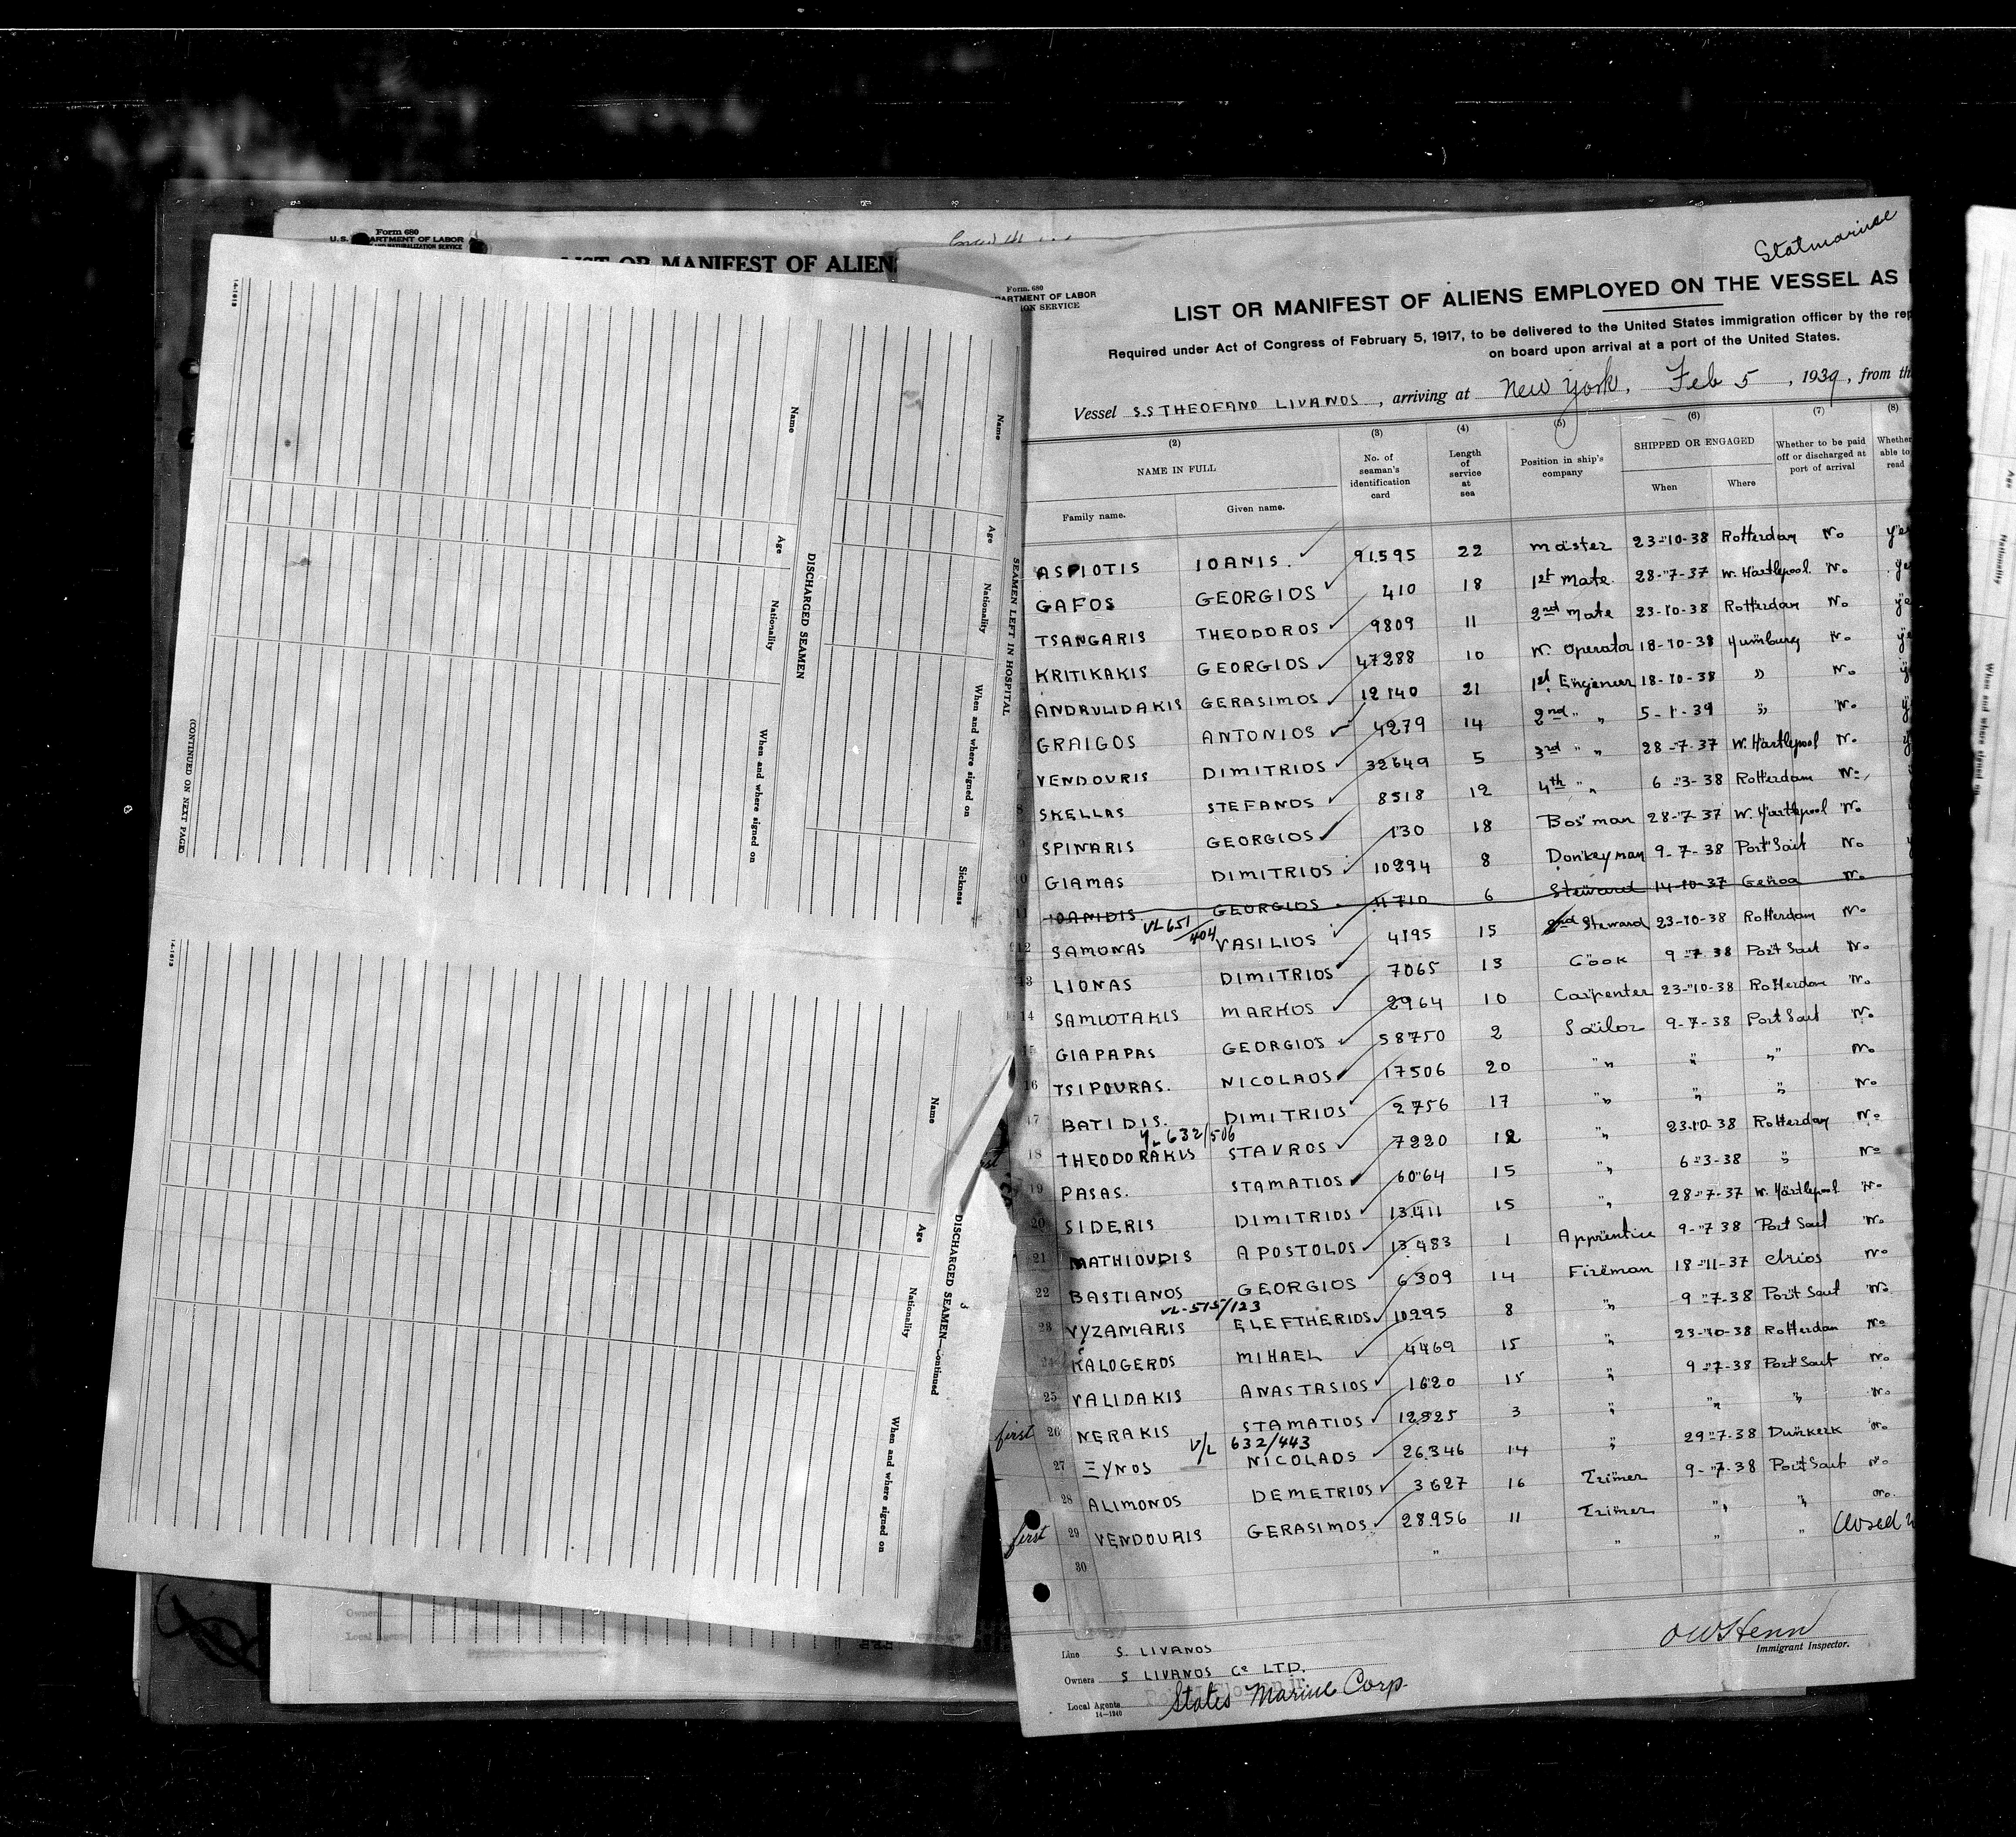 Form 680
LIST OR MANIFEST OF ALIENS
SEAMEN LEFT IN HOSPITAL
Name Age Nationality When and where signed on Sickness
DISCHARGED SEAMEN
Name Age Nationality When and where signed on
(CONTINUED ON NEXT PAGE)
14-1613
DISCHARGED SEAMEN—Continued
Name Age Nationality When and where signed on
14-1613
Statmarine
Form 680
LIST OR MANIFEST OF ALIENS EMPLOYED ON THE VESSEL AS
Required under Act of Congress of February 5, 1917, to be delivered to the United States immigration officer by the rep
on board upon arrival at a port of the United States.
Vessel S.S THEOFANO LIVANOS, arriving at New York, Feb 5, 1939, from th
(2) (3) (4) (5) (6) (7) (8)
NAME IN FULL No. of seaman's identification card Length of service at sea Position in ship's company SHIPPED OR ENGAGED Whether to be paid off or discharged at port of arrival Whether able to read
Family name. Given name. When Where
ASPIOTIS IOANIS. 91.595 22 master 23-10-38 Rotterdam No yes
GAFOS GEORGIOS 410 18 1st Mate 28-7-37 W. Hartlepool No
TSANGARIS THEODOROS 9809 11 2nd Mate 23-10-38 Rotterdam No
KRITIKAKIS GEORGIOS 47288 10 W. Operator 18-10-38 Humburg No
ANDRULIDAKIS GERASIMOS 12140 21 1st Engineer 18-10-38 " No
GRAIGOS ANTONIOS 4279 14 2nd " " 5-1-39 " No
VENDOURIS DIMITRIOS 32649 5 3rd " " 28-7-37 W. Hartlepool No
8 SKELLAS STEFANOS 8518 12 4th " " 6-3-38 Rotterdam No
9 SPINARIS GEORGIOS 130 18 Bos'man 28-7-37 W. Hartlepool No
10 GIAMAS DIMITRIOS 10294 8 Donkeyman 9-7-38 Port Sait No
11 IOANIDIS GEORGIOS 4710 6 Steward 14-10-37 Genoa No
VL 651/404
12 SAMONAS VASILIOS 4195 15 2nd Steward 23-10-38 Rotterdam No
13 LIONAS DIMITRIOS 7065 13 Cook 9-7-38 Port Sait No
14 SAMIOTAKIS MARKOS 2964 10 Carpenter 23-10-38 Rotterdam No
15 GIAPAPAS GEORGIOS 58750 2 Sailor 9-7-38 Port Sait No
16 TSIPOURAS. NICOLAOS 17506 20 " " " " No
17 BATIDIS. DIMITRIOS 2756 17 " " " No
VL 632/506
18 THEODORAKIS STAVROS 7220 12 " 23-10-38 Rotterdam No
19 PASAS. STAMATIOS 60064 15 " 6-3-38 " No
20 SIDERIS DIMITRIOS 13.411 15 " 28-7-37 W. Hartlepool No
21 MATHIOUDIS APOSTOLOS 13.483 1 Apprentice 9-7-38 Port Sait No
22 BASTIANOS GEORGIOS 6309 14 Fireman 18-11-37 Chios No
VL-515/123
23 VYZAMARIS ELEFTHERIOS 10.295 8 " 9-7-38 Port Sait No
24 KALOGEROS MIHAEL 4469 15 " 23-10-38 Rotterdam No
25 VALIDAKIS ANASTASIOS 1620 15 " 9-7-38 Port Sait No
first 26 NERAKIS STAMATIOS 12525 3 " " " No
V/L 632/443
27 ΞYNOS NICOLAOS 26346 14 " 29-7-38 Dunkerk No
28 ALIMONOS DEMETRIOS 3627 16 Trimer 9-7-38 Port Sait No
first 29 VENDOURIS GERASIMOS 28956 11 Trimer " " No.
30 " " " " Closed
Line S. LIVANOS
Owners S LIVANOS Co LTD.
Local Agents States Marine Corp.
14-1240
OWHenn
Immigrant Inspector.